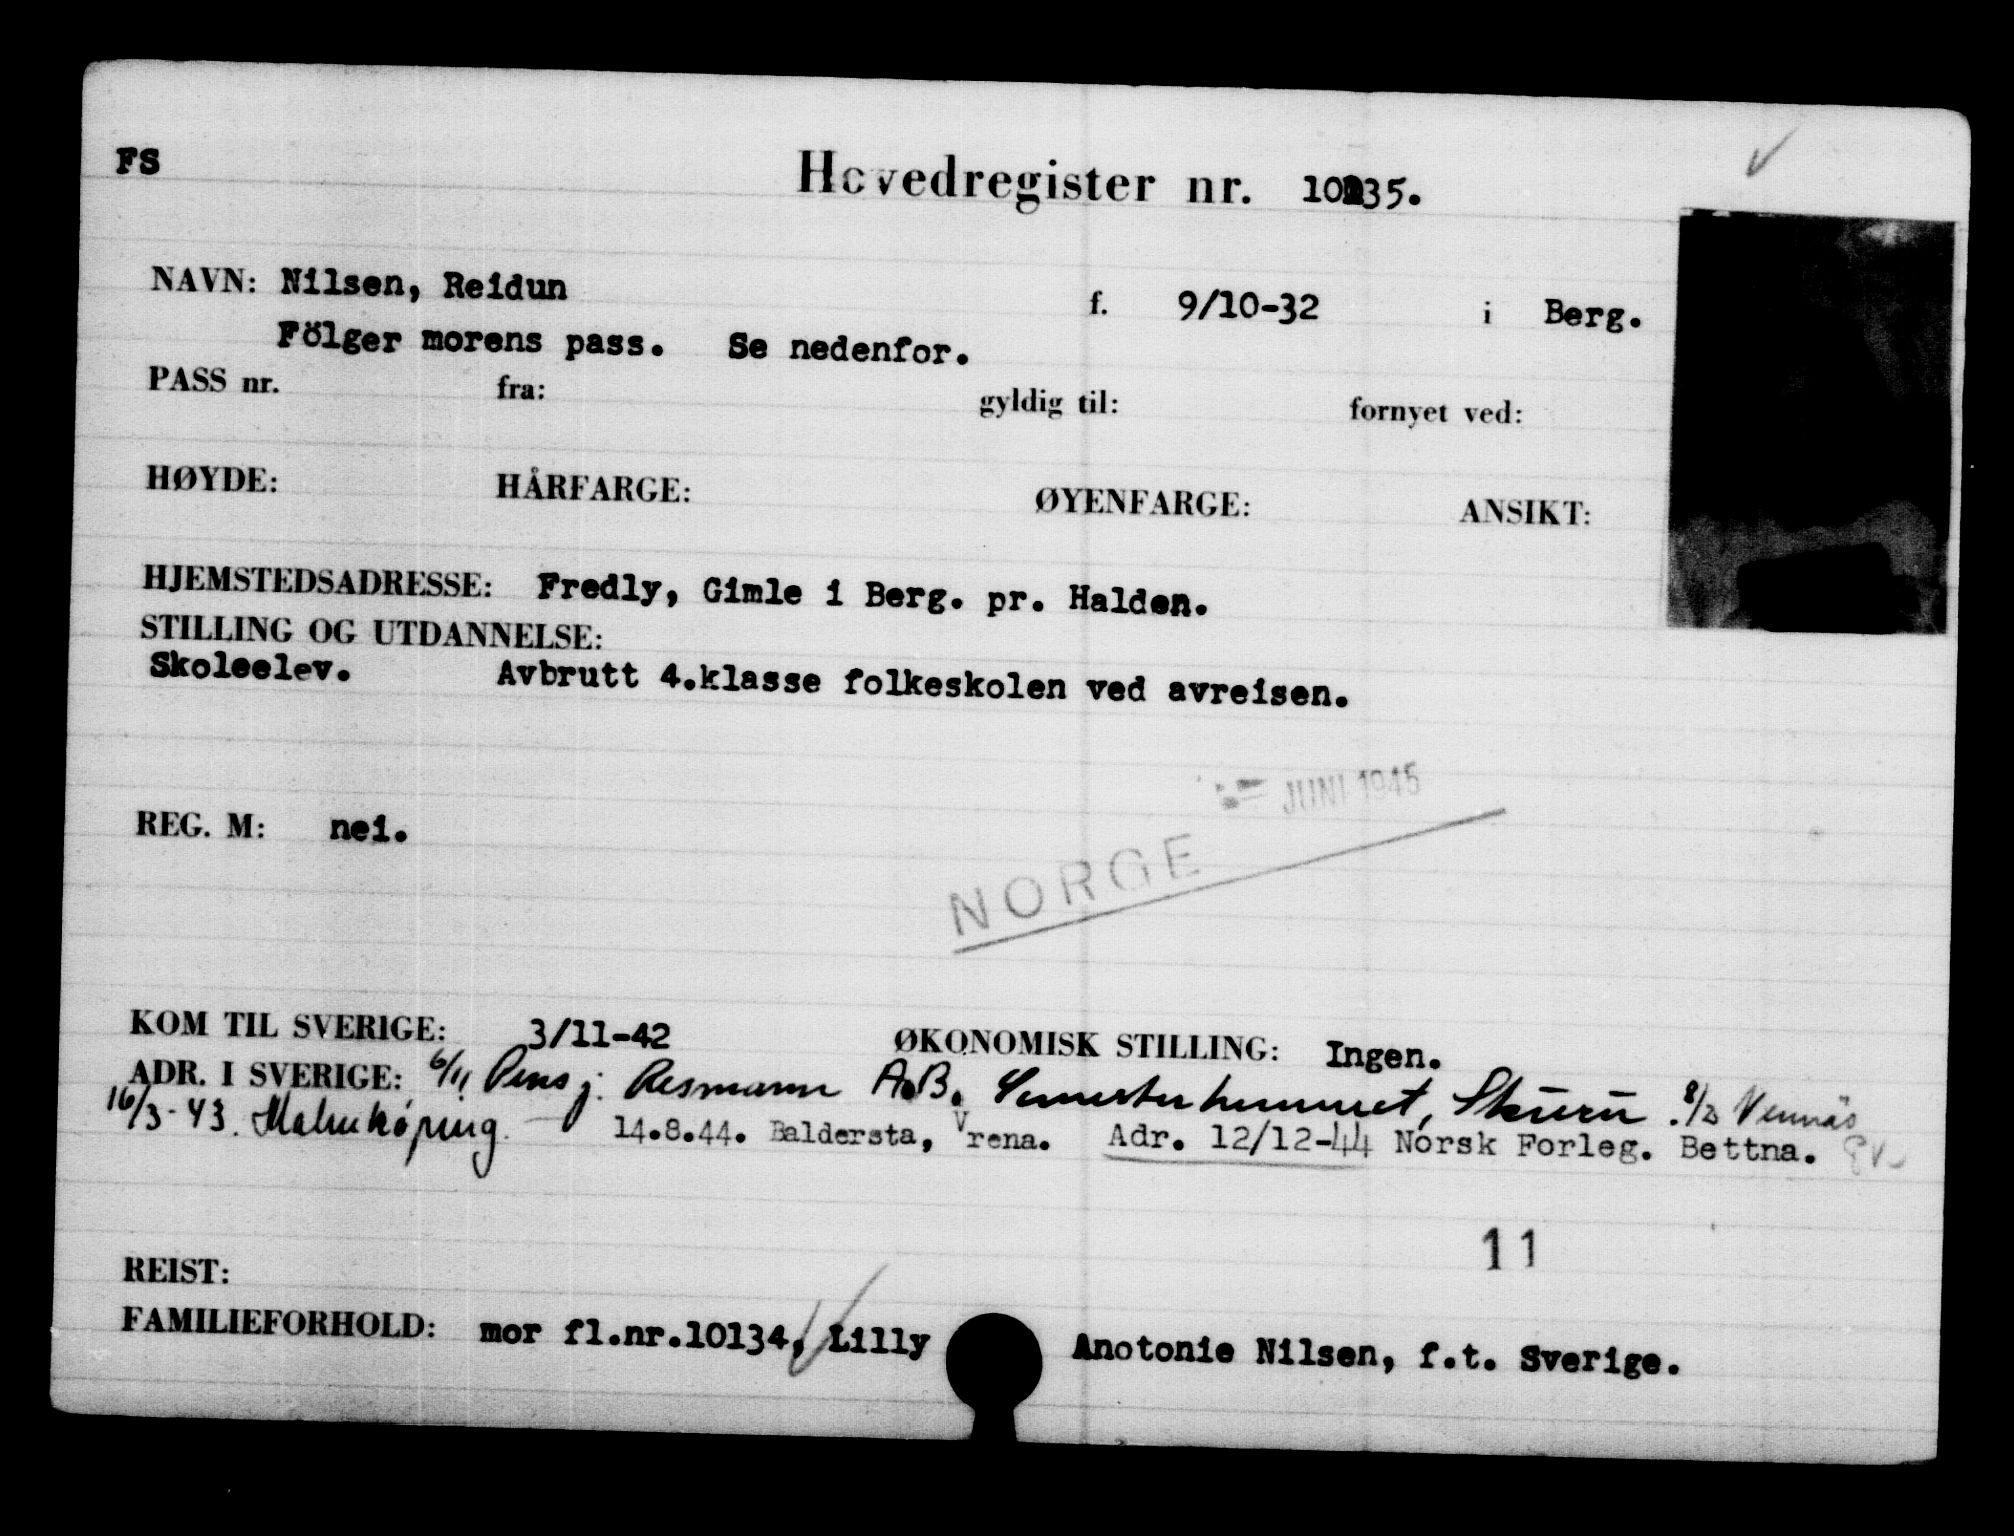 FS
Hovedregister nr. 10135.
NAVN: Nilsen, Reidun f. 9/10-32 i Berg.
Fölger morens pass. Se nedenfor.
PASS nr. fra: gyldig til: fornyet ved:
HØYDE: HÅRFARGE: ØYENFARGE: ANSIKT:
HJEMSTEDSADRESSE: Fredly, Gimle i Berg. pr. Halden.
STILLING OG UTDANNELSE:
Skoleelev. Avbrutt 4.klasse folkeskolen ved avreisen.
JUNI 1945
REG. M: nei.
NORGE
KOM TIL SVERIGE: 3/11-42 ØKONOMISK STILLING: Ingen.
ADR. I SVERIGE: 6/11 Pensj. Resmann A.B. Semesterhemmet, Skuru. Vennäs
16/3-43. Malmköping. 14.8.44. Baldersta, Vrena. Adr. 12/12-44 Norsk Forleg. Bettna.
11
REIST:
FAMILIEFORHOLD: mor fl.nr.10134, Lilly Anotonie Nilsen, f.t. Sverige.